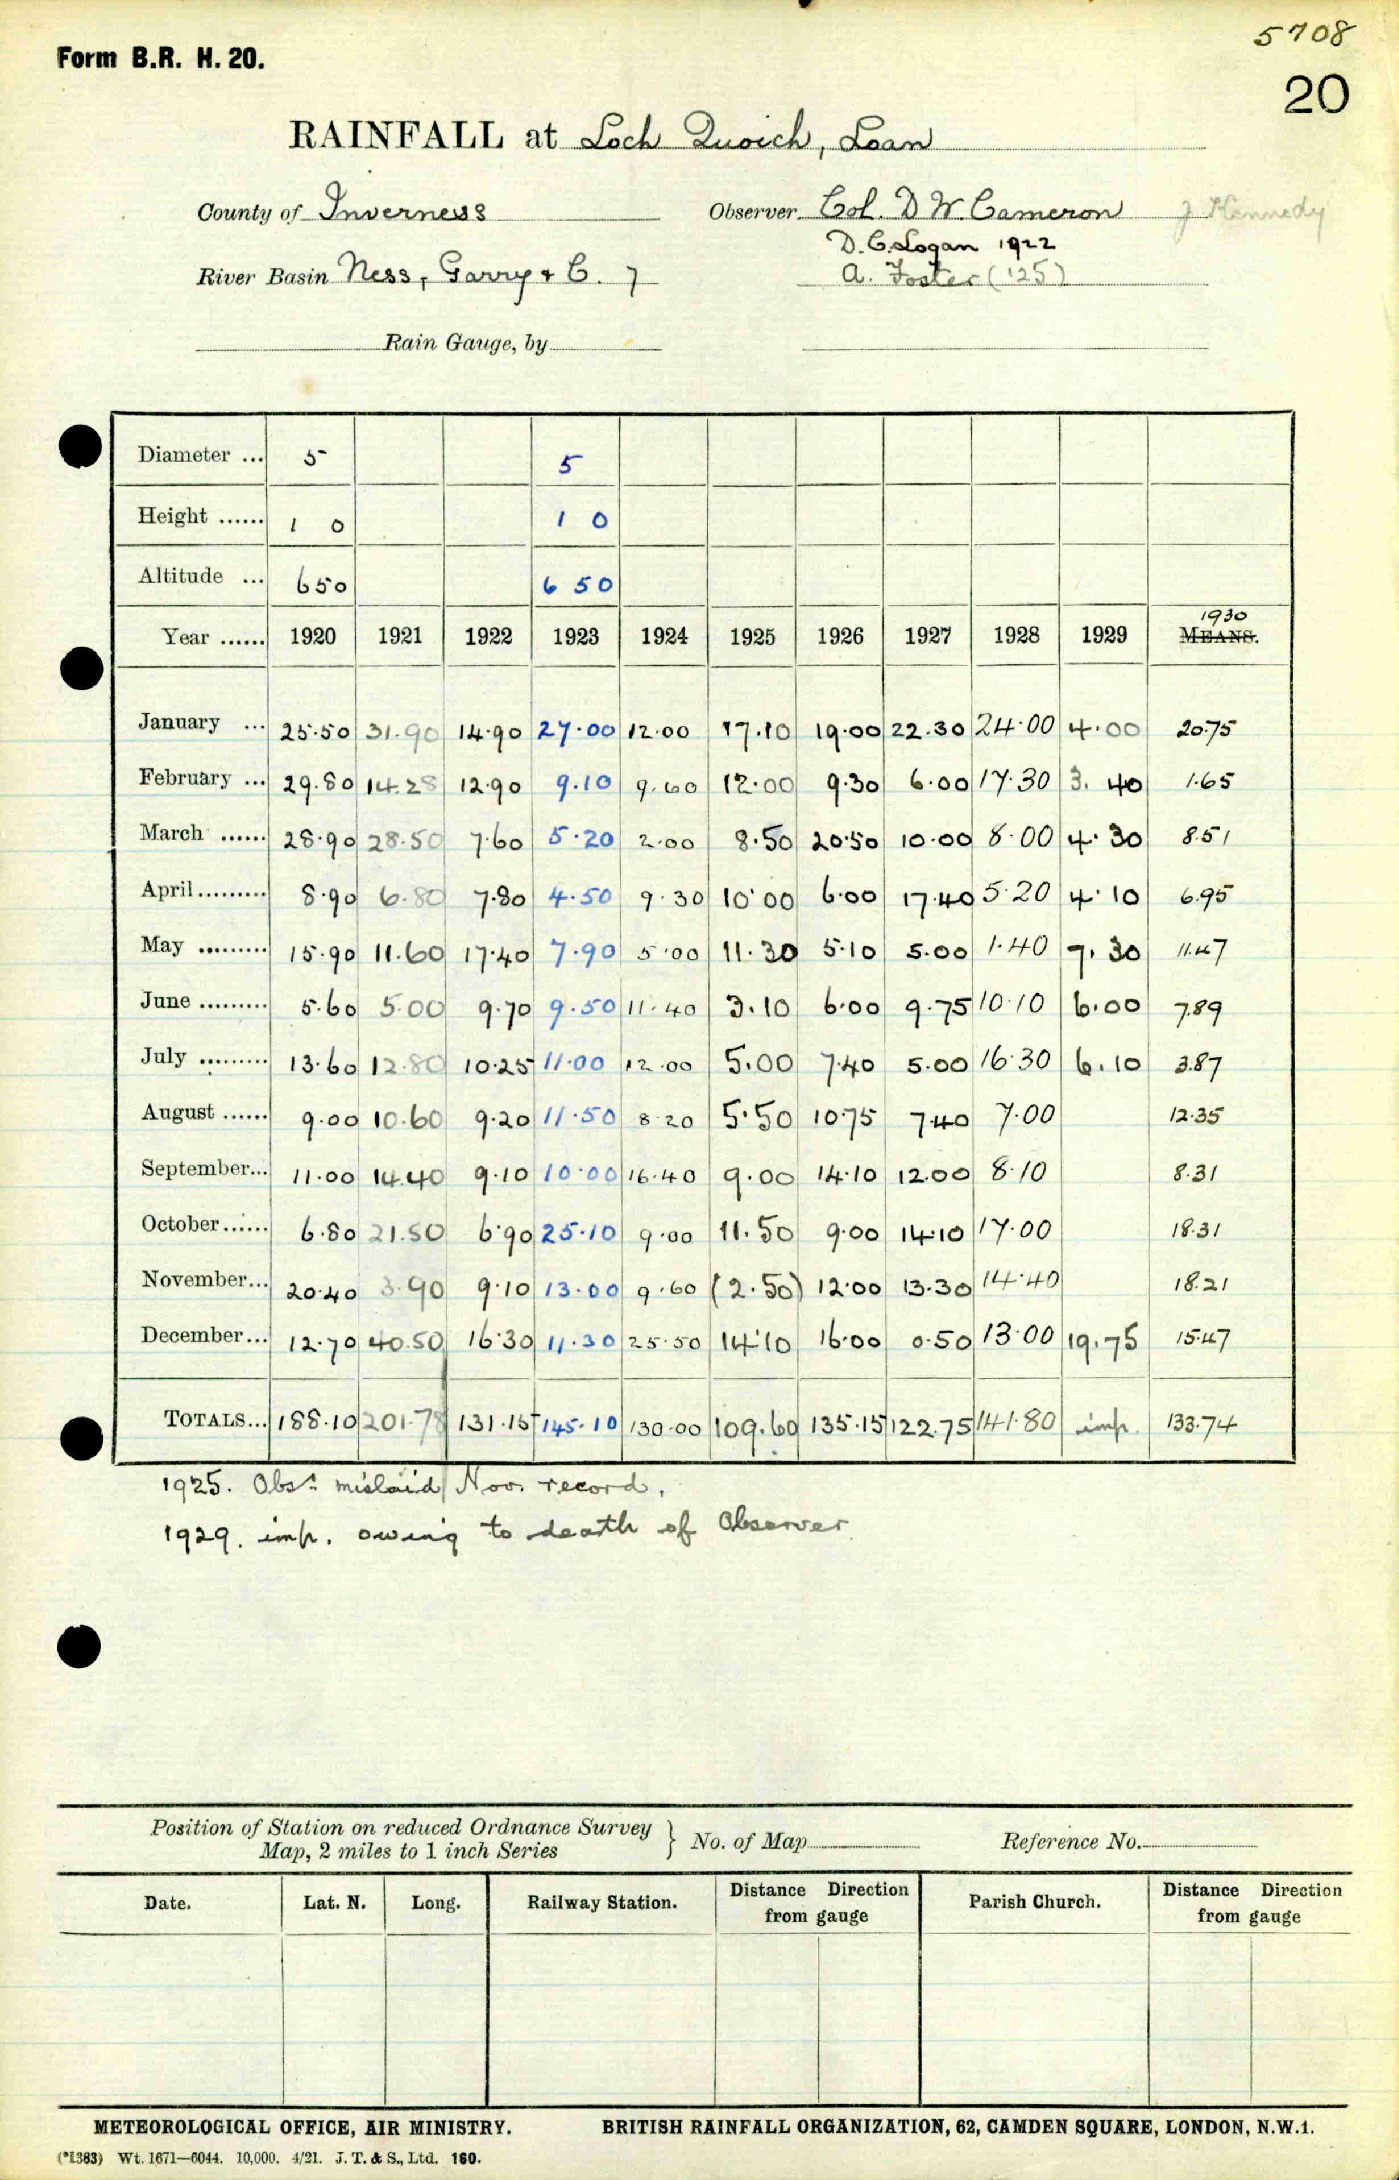 5708
Form B.R. H. 20.
20
RAINFALL at Loch Quoich, Loan
County of Inverness Observer Col. D W. Cameron J Kennedy
D. C. Logan 1922
River Basin Ness, Garry & C. 7 A. Foster ('25)
Rain Gauge, by
Diameter ... 5 5
Height ...... 1 0 1 0
Altitude ... 650 650
1930
Year ...... 1920 1921 1922 1923 1924 1925 1926 1927 1928 1929 MEANS.
January ... 25.50 31.90 14.90 27.00 12.00 17.10 19.00 22.30 24.00 4.00 20.75
February ... 29.80 14.28 12.90 9.10 9.60 12.00 9.30 6.00 17.30 3.40 1.65
March ...... 28.90 28.50 7.60 5.20 2.00 8.50 20.50 10.00 8.00 4.30 8.51
April......... 8.90 6.80 7.80 4.50 9.30 10.00 6.00 17.40 5.20 4.10 6.95
May ......... 15.90 11.60 17.40 7.90 5.00 11.30 5.10 5.00 1.40 7.30 11.47
June ......... 5.60 5.00 9.70 9.50 11.40 3.10 6.00 9.75 10.10 6.00 7.89
July ......... 13.60 12.80 10.25 11.00 12.00 5.00 7.40 5.00 16.30 6.10 3.87
August ...... 9.00 10.60 9.20 11.50 8.20 5.50 10.75 7.40 7.00 12.35
September... 11.00 14.40 9.10 10.00 16.40 9.00 14.10 12.00 8.10 8.31
October...... 6.80 21.50 6.90 25.10 9.00 11.50 9.00 14.10 17.00 18.31
November... 20.40 3.90 9.10 13.00 9.60 (2.50) 12.00 13.30 14.40 18.21
December... 12.70 40.50 16.30 11.30 25.50 14.10 16.00 0.50 13.00 19.75 15.47
TOTALS... 188.10 201.78 131.15 145.10 130.00 109.60 135.15 122.75 141.80 imp. 133.74
1925. Obsr. mislaid Nov. record.
1929. imp. owing to death of Observer
Position of Station on reduced Ordnance Survey
Map, 2 miles to 1 inch Series } No. of Map Reference No.
Date. Lat. N. Long. Railway Station. Distance Direction from gauge Parish Church. Distance Direction from gauge
METEOROLOGICAL OFFICE, AIR MINISTRY. BRITISH RAINFALL ORGANIZATION, 62, CAMDEN SQUARE, LONDON, N.W.1.
(*1383) Wt. 1671—6044. 10,000. 4/21. J. T. & S., Ltd. 160.